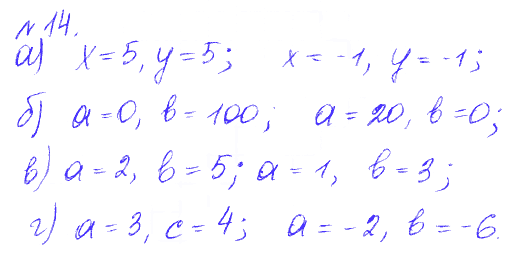 № 14.
а) x = 5, y = 5; x = -1, y = -1;
б) a = 0, b = 100; a = 20, b = 0;
в) a = 2, b = 5; a = 1, b = 3;
г) a = 3, c = 4; a = -2, b = -6.